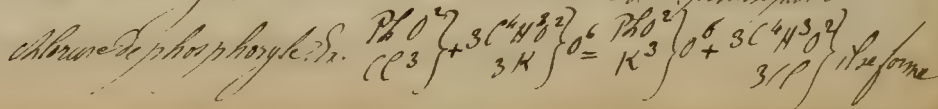 chlorure de phosphoryle: Ex. PhO² Cl³ } + 3C⁴H³O² 3K } O⁶ = PhO² K³ } O⁶ + 3C⁴H³O² 3Cl } il se forme